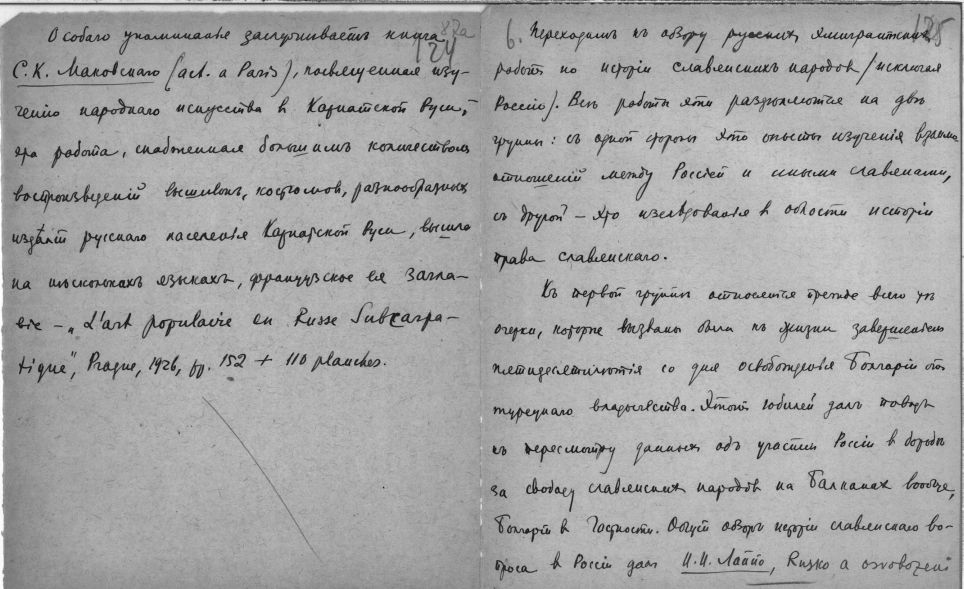 87а
124
Особаго упоминанье заслуживаетъ книга
С.К. Маковскаго (act. a Paris), посвященная изу-
ченію народнаго искусства в Карпатской Руси,
эта работа, снабженная большимъ количествомъ
воспроизведеній вышивокъ, костюмов, разнообразных
издѣлій русскаго населенья Карпатской Руси, вышла
на нѣсколькахъ языкахъ, французское ея загла-
віе – „L'art populaire en Russe Subcarpa-
tique", Prague, 1926, pp. 152 + 110 planches.
125
6. Переходимъ къ обзору русских эмигрантских
работъ по исторіи славянскихъ народов (исключая
Россію). Всѣ работы эти раздѣляются на двѣ
группы: съ одной стороны это опыты изученія взаимо
отношеній между Россіей и иными славянами,
съ другой – это изслѣдованья в области исторіи
права славянскаго.
Къ первой группѣ относятся прежде всего тѣ
очерки, которые вызваны были къ жизни завершеніем
пятидесятилѣтія со дня освобожденья Болгаріи отъ
турецкаго владычества. Этотъ юбилей далъ поводъ
къ пересмотру данных объ участіи Россіи в борьбѣ
за свободу славянских народов на Балканах вообще,
Болгаріи в частности. Общій обзоръ исторіи славянскаго во-
проса в Россіи далъ И.И. Лаппо, Rusko a osvobození